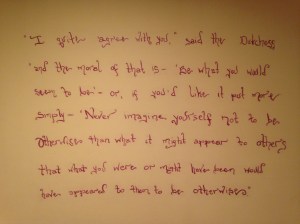 "I quite agree with you," said the Duchess
"and the moral of that is - 'Be what you would
seem to be' - or, if you'd like it put more
simply - 'Never imagine yourself not to be
otherwise than what it might appear to others
that what you were or might have been would
have appeared to them to be otherwise.'"